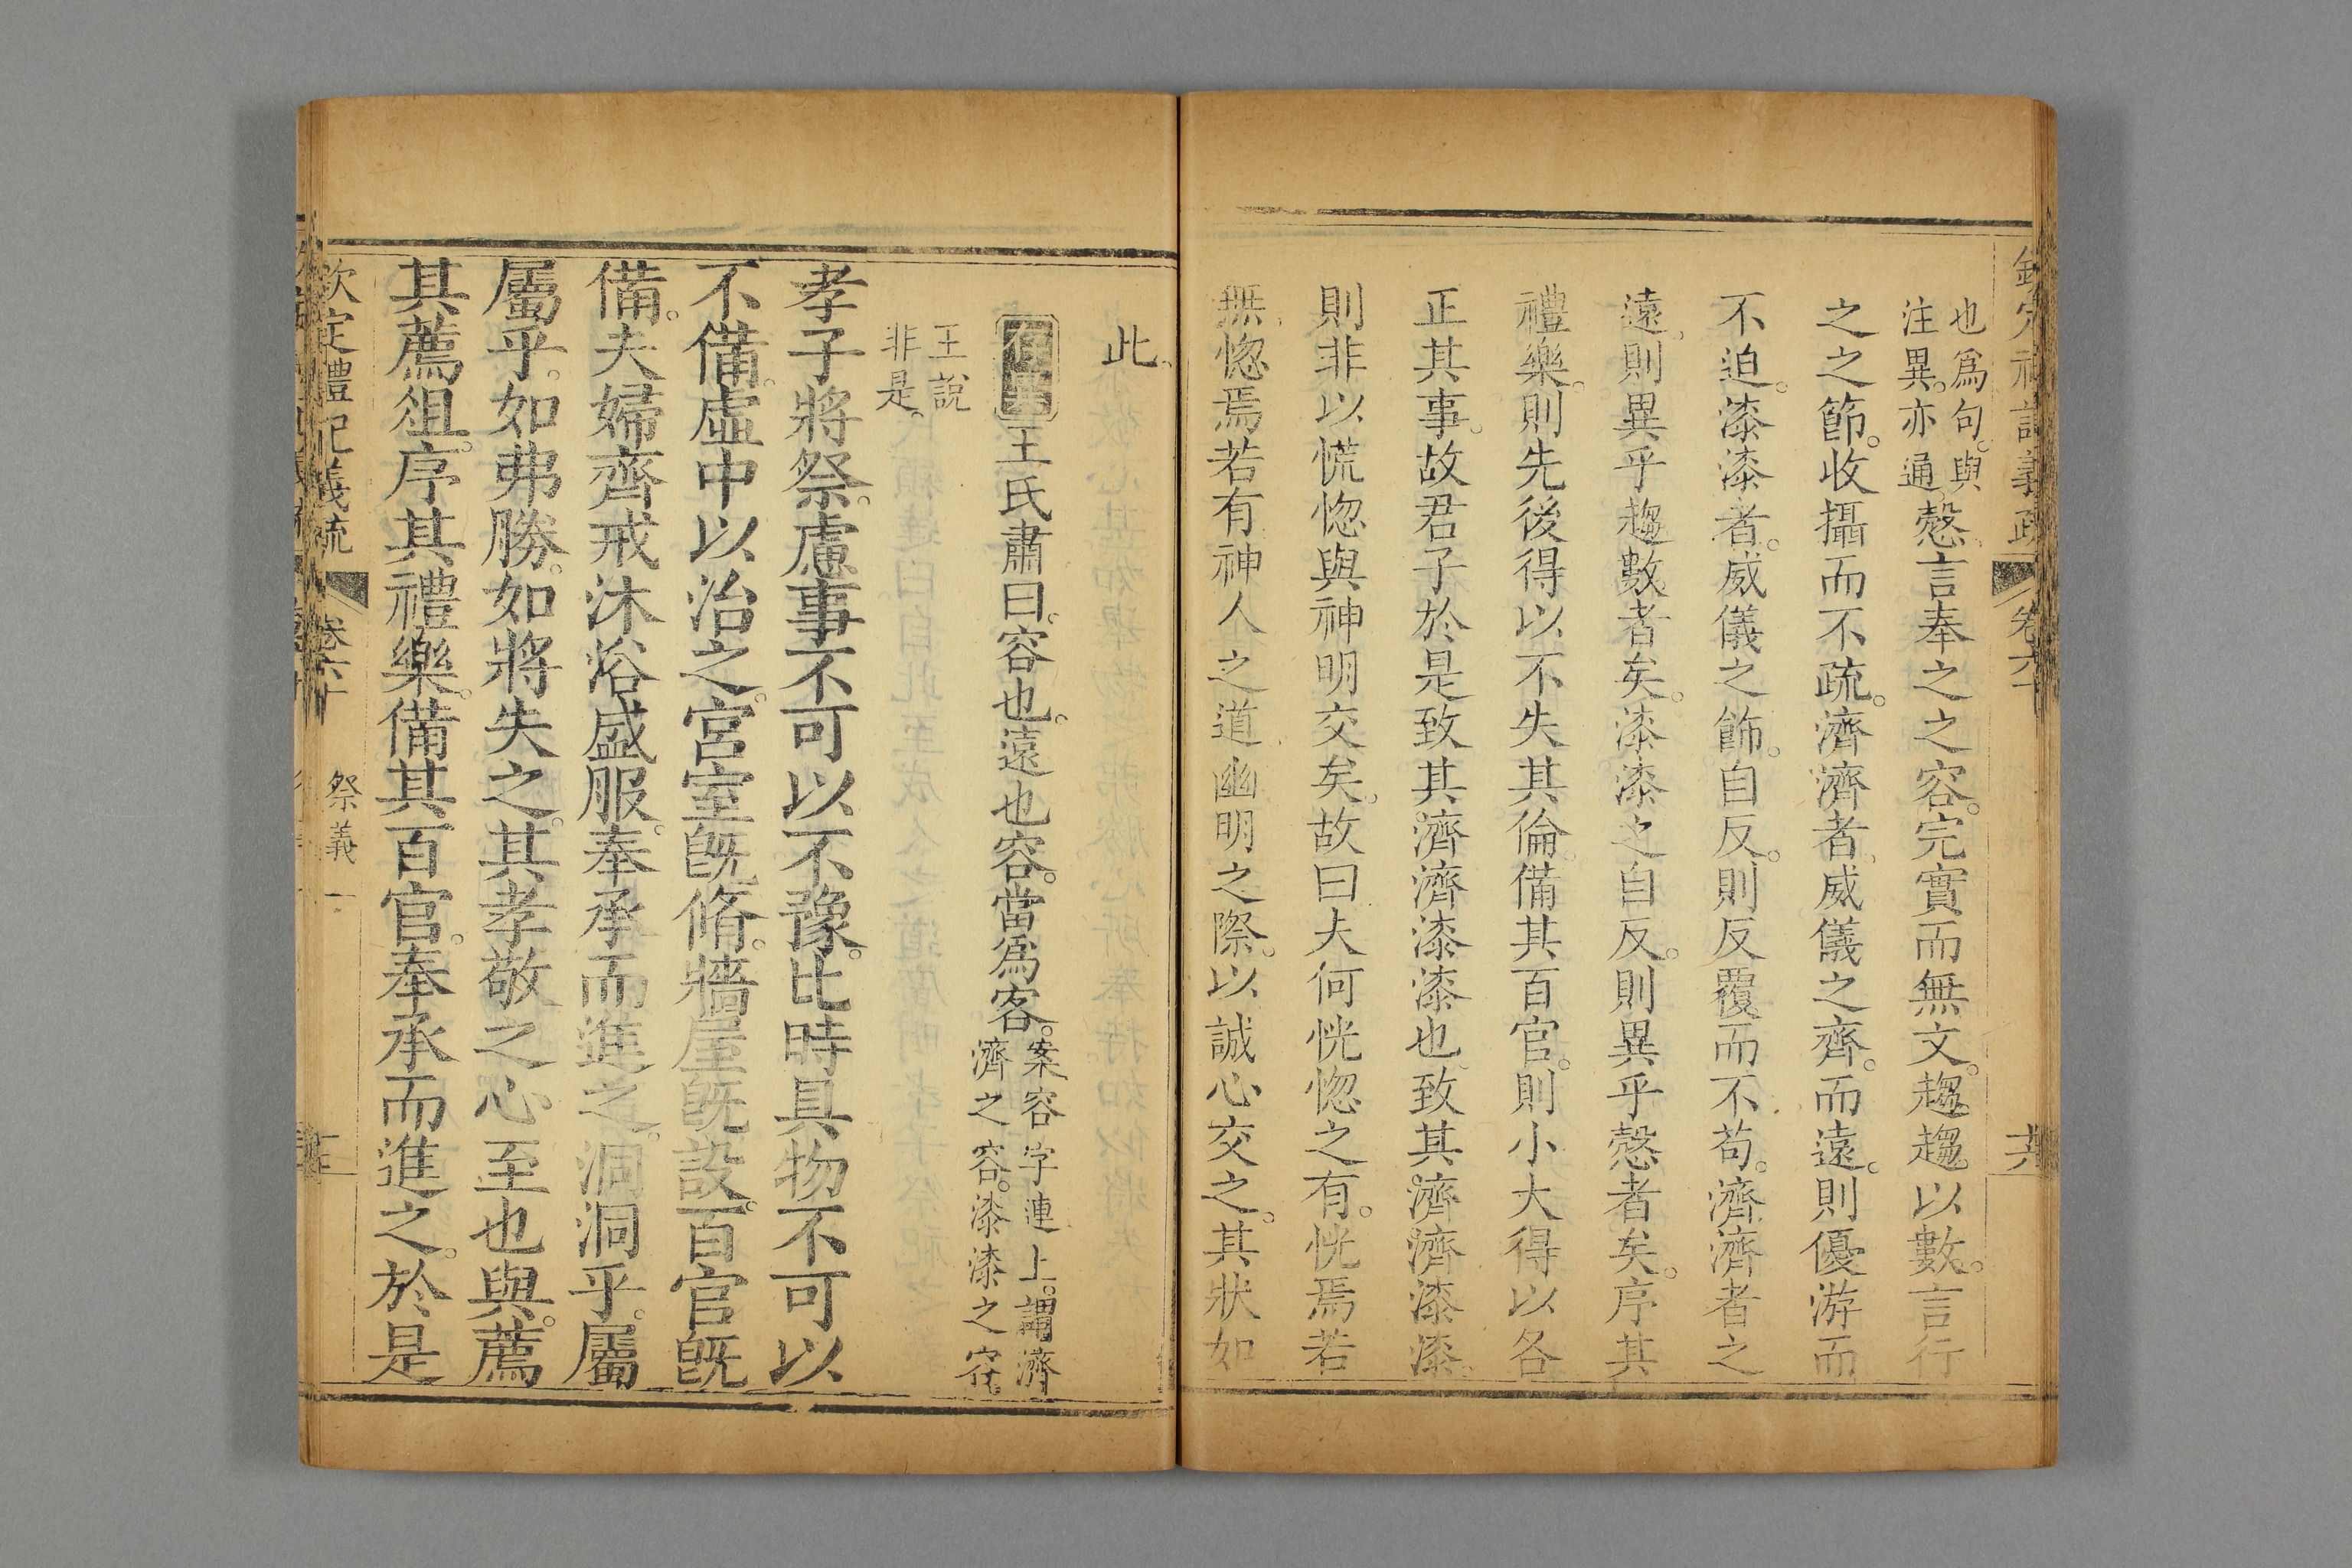 欽定禮記義疏 卷六十
也爲句。與
注異。亦通。
慤、言奉之之容。完實而無文。趨趨以數。言行
之之節。收攝而不疏。濟濟者、威儀之齊。而遠。則優游而
不迫。漆漆者。威儀之飾。自反。則反覆而不苟。濟濟者之
遠、則異乎趨數者矣。漆漆之自反。則異乎慤者矣。序其
禮樂。則先後得以不失其倫。備其百官。則小大得以各
正其事。故君子於是致其濟濟漆漆也。致其濟濟漆漆
則非以慌惚與神明交矣。故曰夫何恍惚之有。恍焉若
無、惚焉若有神人之道幽明之際。以誠心交之。其狀如
此。
王氏肅曰。容也。遠也容。當爲客。
案容字連上。謂濟
濟之容。漆漆之容。
王說
非是。
孝子將祭。慮事不可以不豫。比時具物不可以
不備。虛中以治之。宮室旣脩。牆屋旣設。百官旣
備。夫婦齊戒沐浴盛服。奉承而進之。洞洞乎。屬
屬乎。如弗勝。如將失之。其孝敬之心至也與。薦
其薦俎。序其禮樂。備其百官。奉承而進之。於是
欽定禮記義疏 卷六十 祭義一